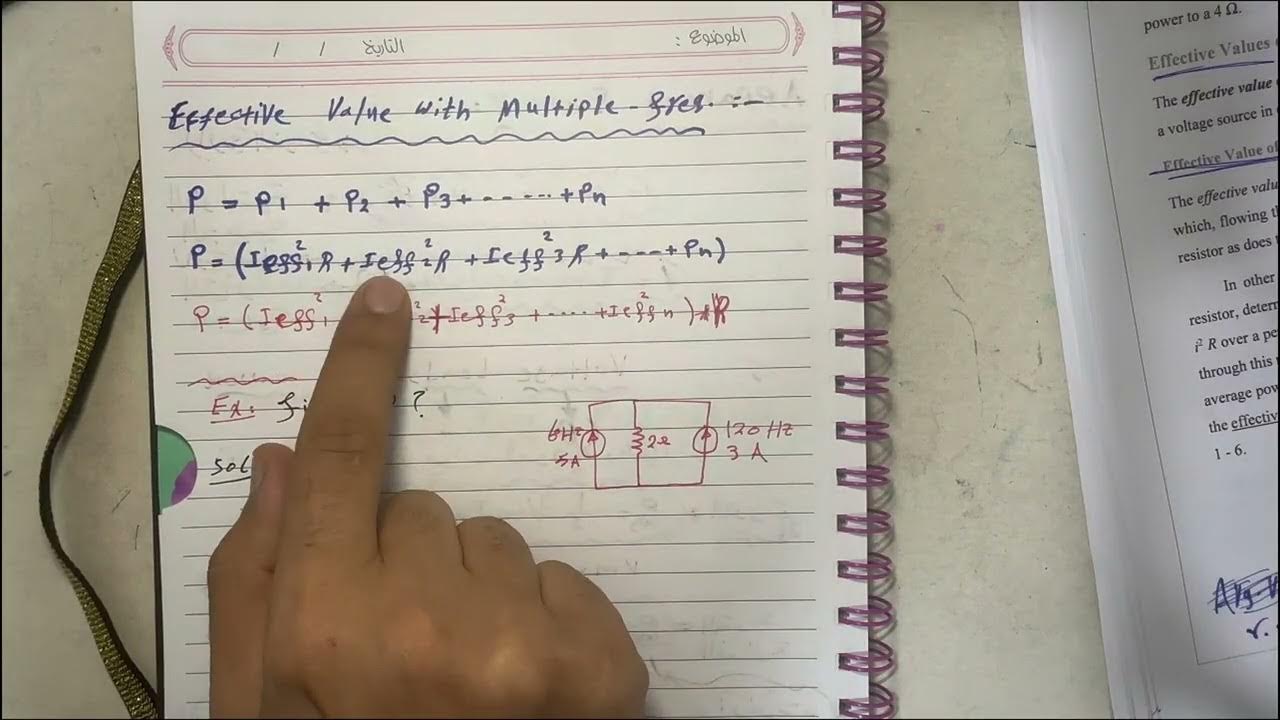 الموضوع :
التاريخ / /
Effective Value with Multiple freq. :-
P = P1 + P2 + P3 + ----- + Pn
P = (Ieff²1 R + Ieff²2 R + Ieff²3 R + ---- + Pn)
P = (Ieff²1 ²2 + Ieff²3 + ---- + Ieff²n) * R
Ex: ?
6Hz
5A
2Ω
120 Hz
3 A
Sol
power to a 4 Ω.
Effective Values
The effective value
a voltage source in
Effective Value of
The effective valu
which, flowing th
resistor as does
In other
resistor, deterr
i² R over a pe
through this
average pow
the effective
1 - 6.